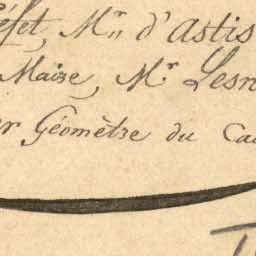 éfet, Mr. d'astis
Maire, Mr. Lesn
er Géomètre du Ca